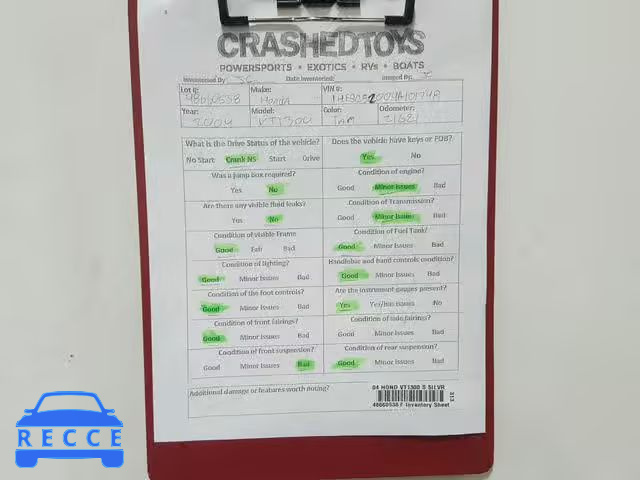 CRASHEDTOYS
POWERSPORTS • EXOTICS • RVs • BOATS
Inventoried By Date Inventoried
Lot #: Make: VIN #:
48660558 Honda
Year: Model: Color: Odometer:
2004 VT1300 21621
What is the Drive Status of the vehicle? Does the vehicle have keys or FOB?
No Start Crank NS Start Drive Yes No
Was a jump box required? Condition of engine?
Yes No Good Minor Issues Bad
Are there any visible fluid leaks? Condition of Transmission?
Yes No Good Minor Issues Bad
Condition of visible Frame Condition of Fuel Tank?
Good Fair Bad Good Minor Issues Bad
Condition of lighting? Handlebar and hand controls condition?
Good Minor Issues Bad Good Minor Issues Bad
Condition of the foot controls? Are the instrument gauges present?
Good Minor Issues Bad Yes Yes/has issues No
Condition of front fairings? Condition of side fairings?
Good Minor Issues Bad Good Minor Issues Bad
Condition of front suspension? Condition of rear suspension?
Good Minor Issues Bad Good Minor Issues Bad
Additional damage or features worth noting?
04 HOND VT1300 S SILVR
Inventory Sheet
RECCE